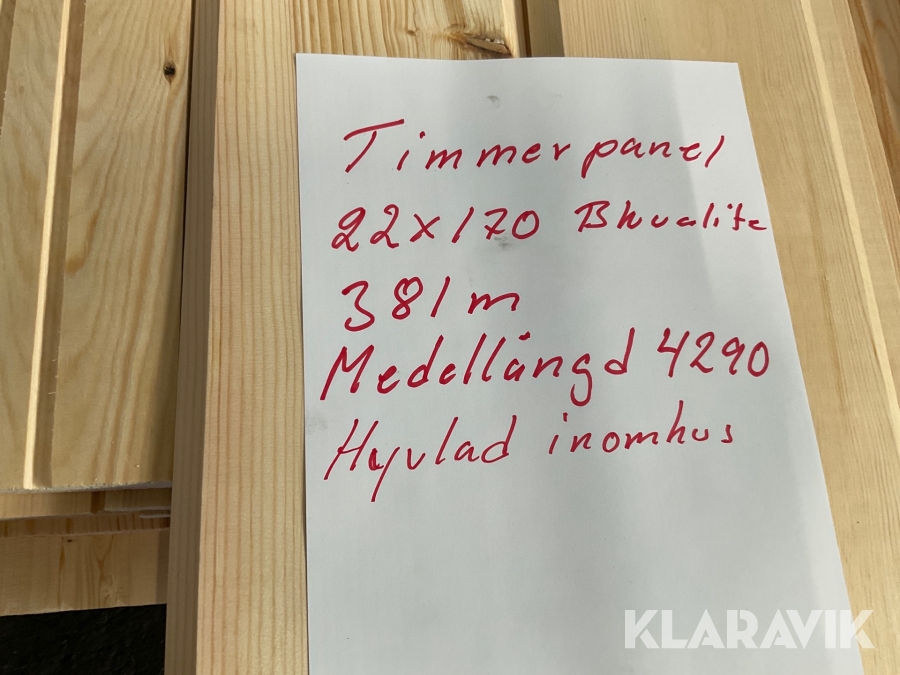 Timmerpanel
22x170 Bkvalite
381m
Medellängd 4290
Hyvlad inomhus
KLARAVIK